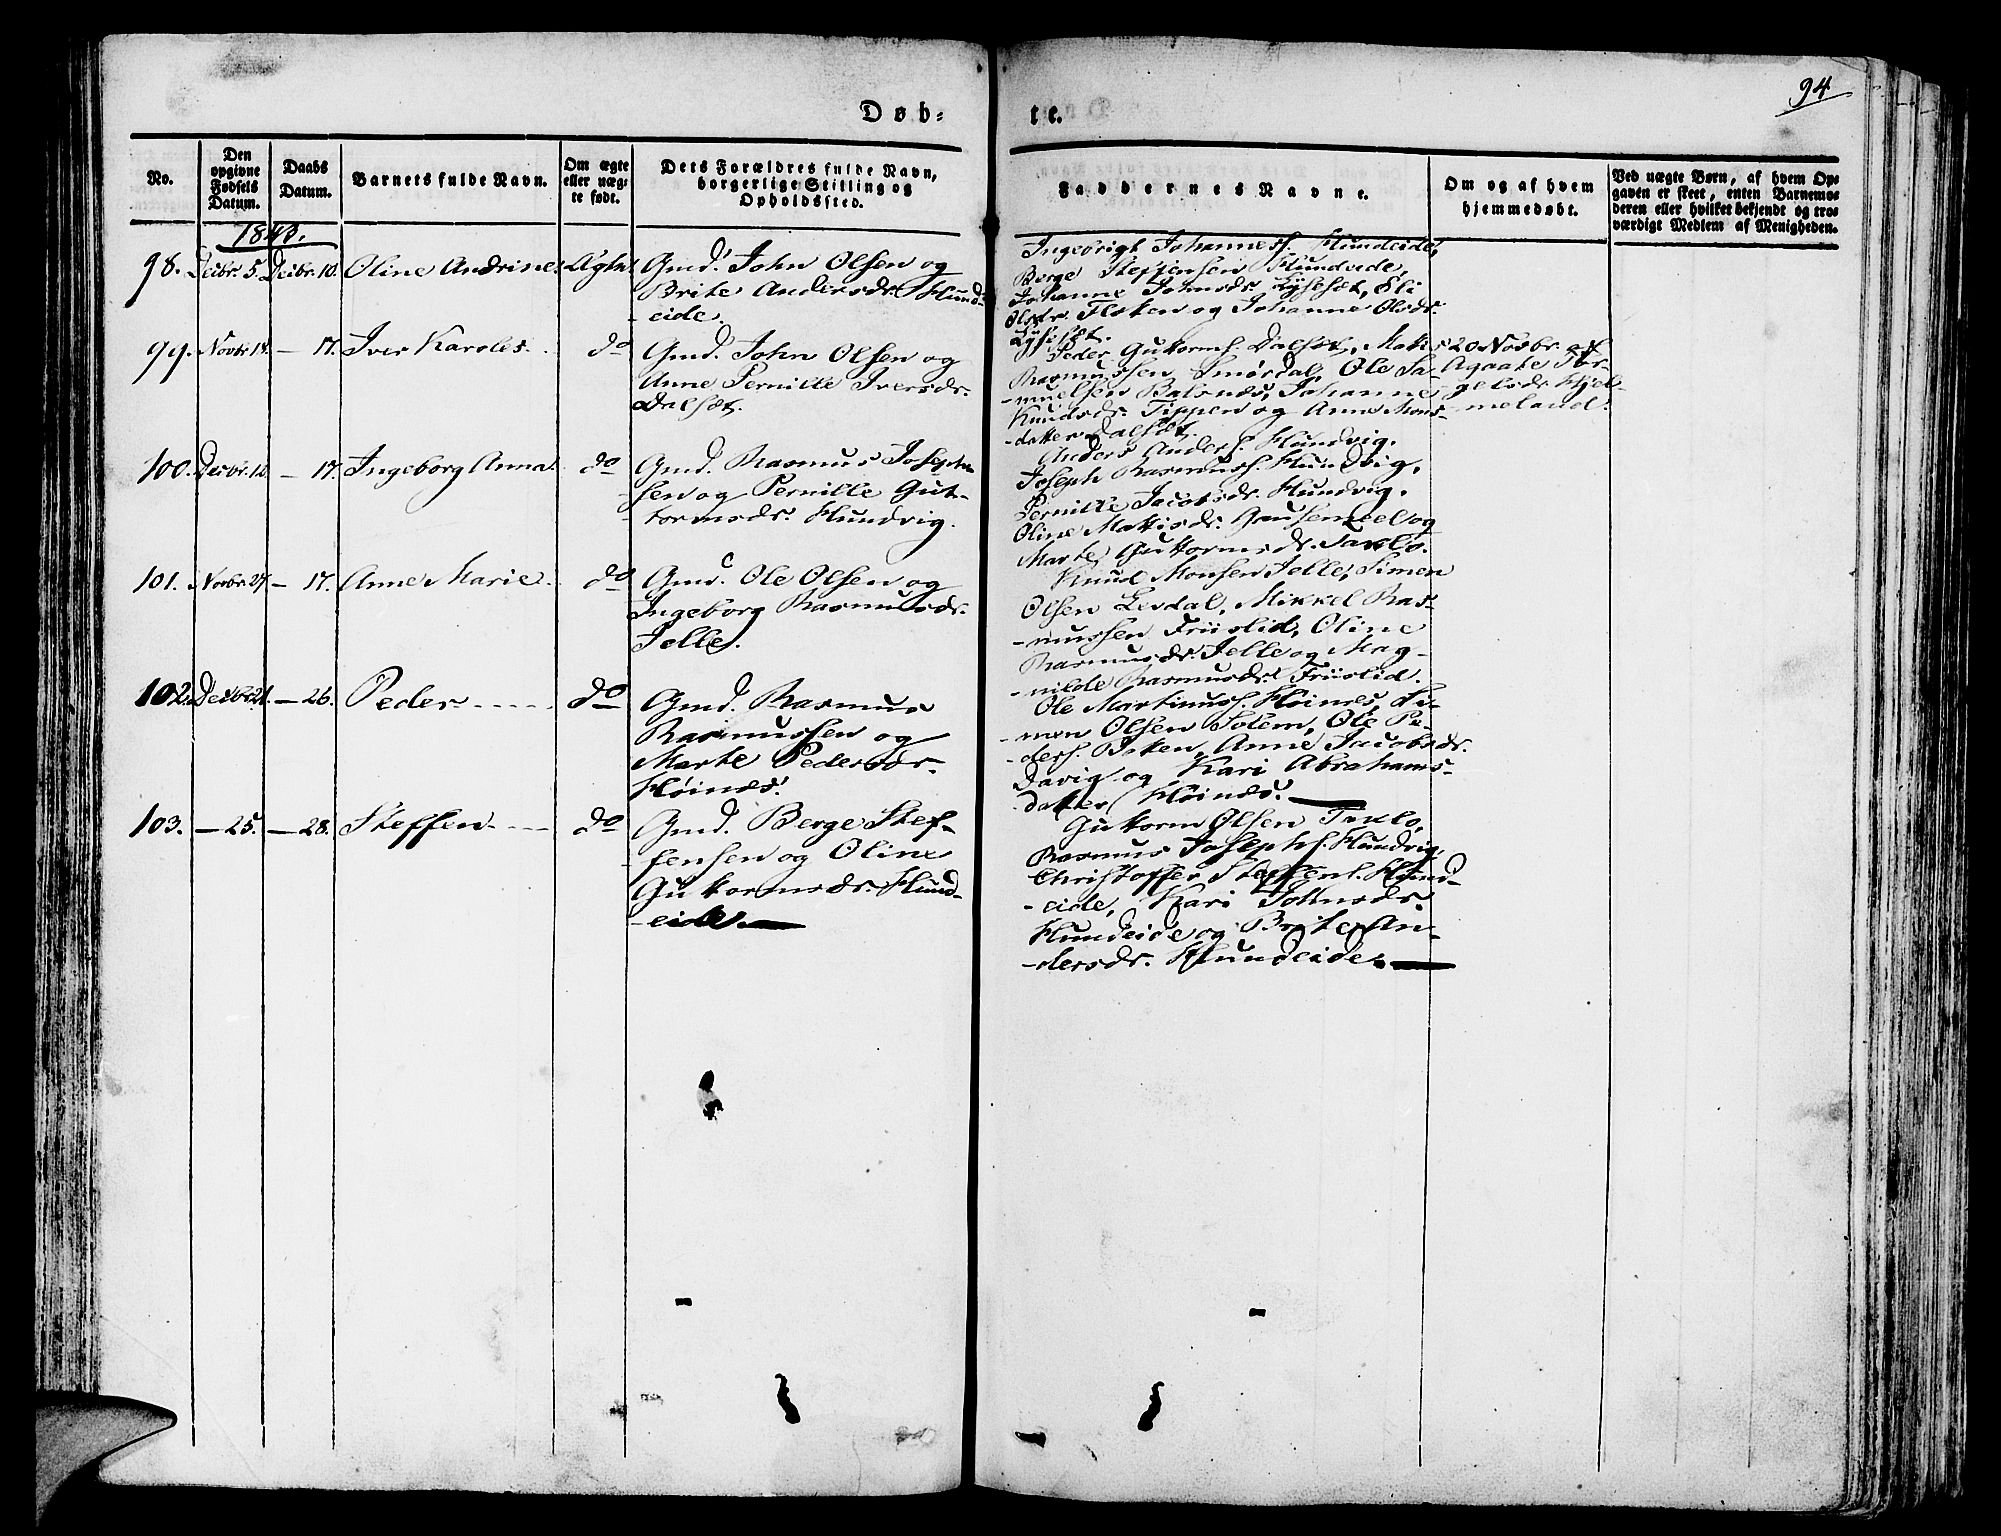 94
Døb-
te.
No.
Den
opgivne
Fødsels
Datum.
Daabs
Datum.
Barnets fulde Navn.
Om ægte
eller uæg-
te født.
Dets Forældres fulde Navn,
borgerlige Stilling og
Opholdssted.
Faddernes Navne.
Om og af hvem
hjemmedøbt.
Ved uægte Børn, af hvem Op-
gaven er skeet, enten Barnemo-
deren eller hvilket bekjendt og tro-
værdigt Medlem af Menigheden.
98. Decbr. 5. Decbr. 10. Oline Andrine. Ægte.
Gmd. John Olsen og
Brite Andersdr. Hund-
-eide.
Ingebrigt Johannesf. Hundeide,
Berge Steffensen Hundeide,
Johanne Johnsdr. Lyseset, Eli
Olsdr. Floten og Johanne Olsdr.
Lyseset.
99. Novbr 18. — 17. Iver Karoles. do
Gmd. John Olsen og
Anne Pernille Iversdr.
Dalset.
Peder Guttormf. Dalset, Mattis
Rasmussen Smørdal, Ole Sa-
-muelsen Balsnes, Johanne
Knudsdr. Tippen og Anne Mons-
-datter Dalset.
20 Novbr. af
Agaate Tor-
gelsdr. Hjel-
-meland.
100. Decbr. 10. — 17. Ingeborg Anna. do
Gmd. Rasmus Joseph-
sen og Pernille Gut-
-tormsdr. Hundvig.
Anders Andersf. Hundvig.
Joseph Rasmusf. Hundvig,
Pernille Jacobsdr. Hundvig.
Oline Mattisdr. og
Marte Guttormsdr. Taklo.
101. Novbr. 27. — 17. Anne Marie. do
Gmd. Ole Olsen og
Ingeborg Rasmusdr.
Jelle.
Knud Monsen Jelle, Simen
Olsen Levdal, Mikkel Ras-
-mussen Friislid, Oline
Rasmusdr. Jelle og Mag-
-nilde Rasmusdr. Friislid.
102. Decbr 21. — 26. Peder - - - - - do
Gmd. Rasmus
Rasmussen og
Marte Pedersdr.
Høines.
Ole Martinusf. Høines, Si-
-mon Olsen Solem, Ole Pe-
-dersf. Boken, Anne Jacobsdr.
Davig og Kari Abrahams-
-datter Høines.
103. — 25. — 28. Steffen. - - - do
Gmd. Berge Stef-
fensen og Oline
Guttormsdr. Hund-
-eide.
Guttorm Olsen Taklo,
Rasmus Josephf. Hundvig,
Christoffer Steffenf. Hund-
-eide, Kari Johnsdr.
Hundeide og Brite An-
-dersdr. Hundeide.